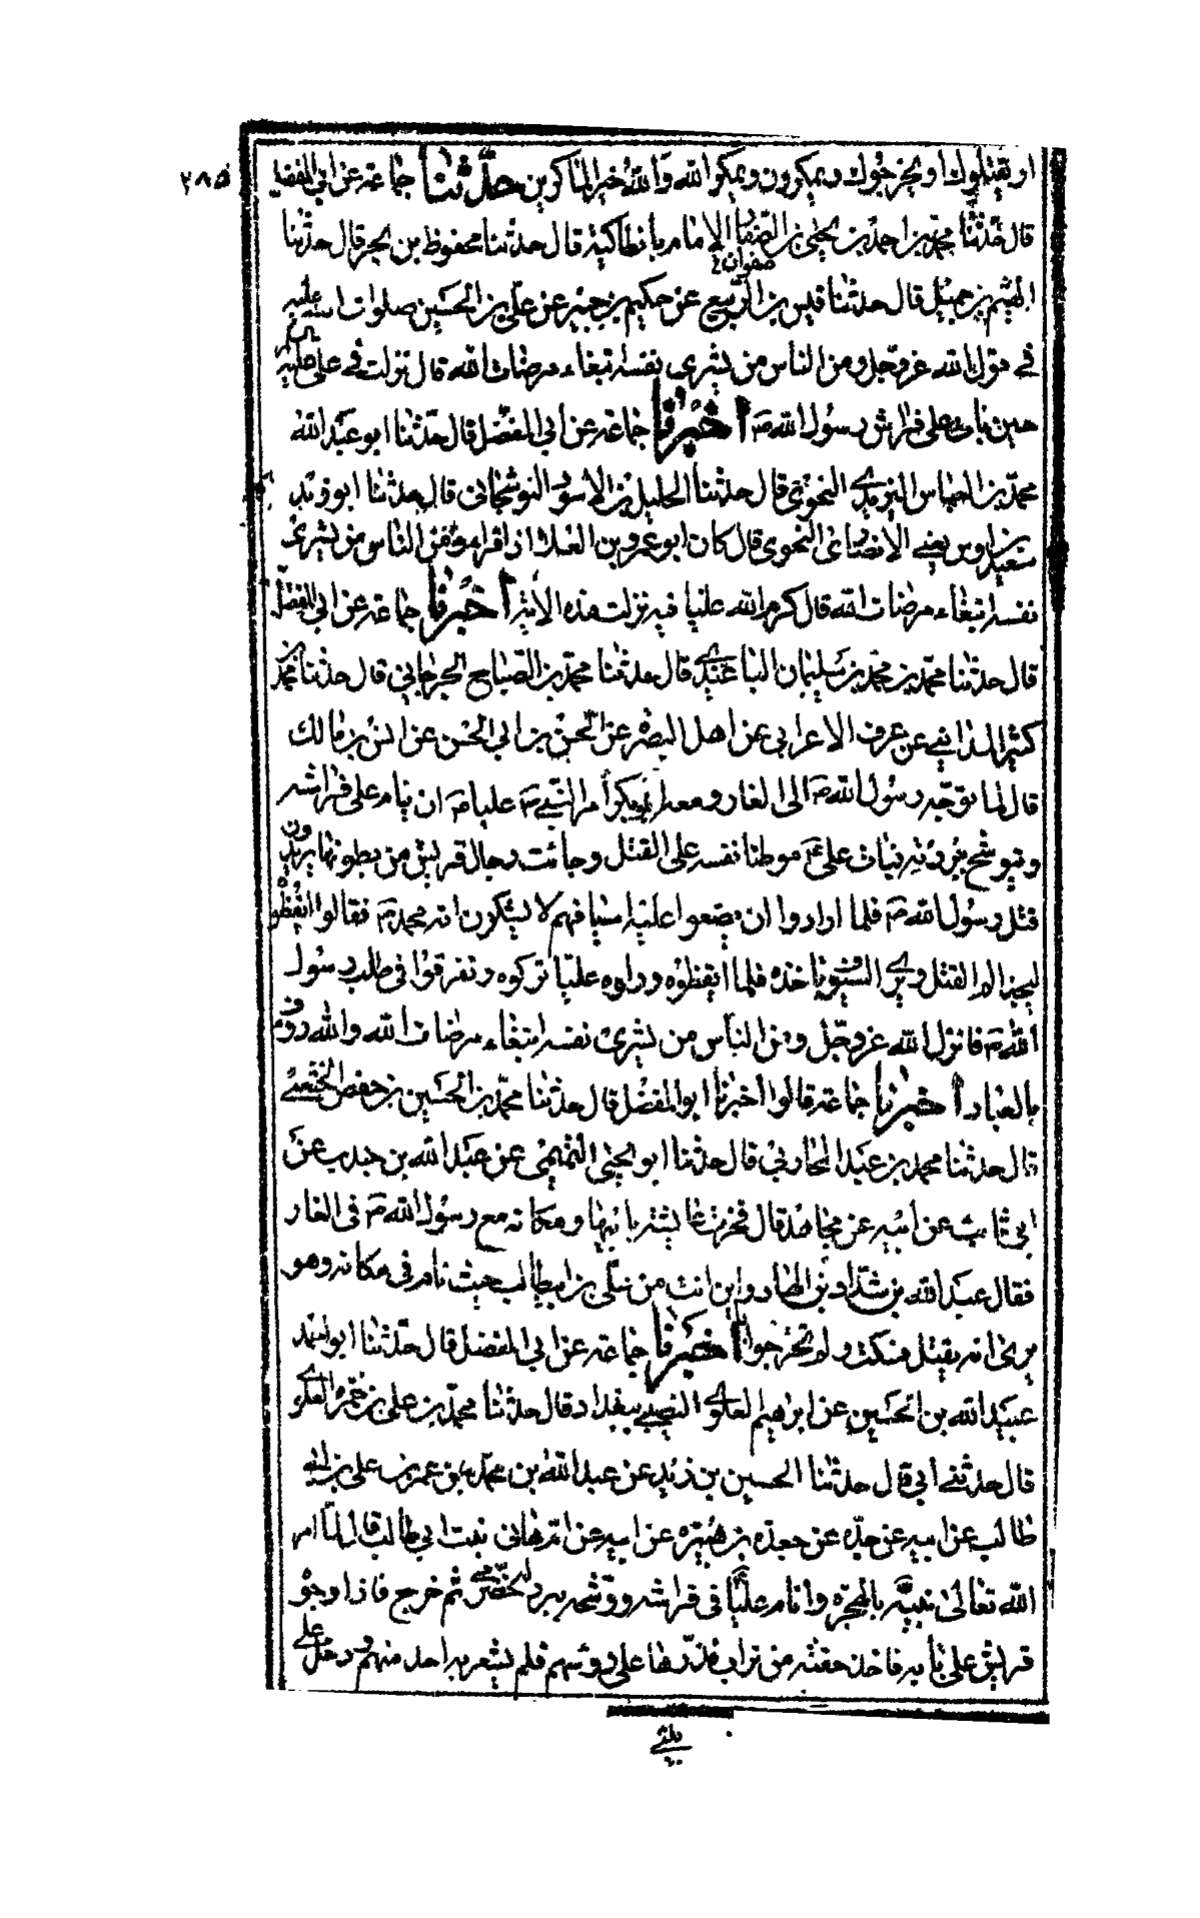 ٢٨٥
او يقتلوك او يخرجوك ويمكرون ويمكر الله والله خير الماكرين حدثنا جماعة عن ابى المفضل
قال حدثنا محمد بن احمد بن يحيى بن الصفوان الامام بانطاكية قال حدثنا محفوظ بن بحر قال حدثنا
صفوان
الهيثم بن جميل قال حدثنا قيس بن الربيع عن حكيم بن جبير عن على بن الحسين صلوات الله عليه
فى قول الله عز وجل ومن الناس من يشرى نفسه ابتغاء مرضات الله قال نزلت فى على عليه السلام
حين بات على فراش رسول الله ص أخبرنا جماعة عن أبى المفضل قال حدثنا ابو عبد الله
محمد بن العباس اليزيدى النحوى قال حدثنا الخليل بن الاسود النوشجانى قال حدثنا ابو زيد
سعيد بن اوس يعنى الانصارى النحوى قال كان ابو عمرو بن العلا اذا قرا ومن الناس من يشرى
نفسه ابتغاء مرضات الله قال كرم الله عليا فيه نزلت هذه الاية أخبرنا جماعة عن ابى المفضل
قال حدثنا محمد بن محمد بن سليمان الباغندى قال حدثنا محمد بن الصباح الجرجانى قال حدثنا محمد بن
كثير المدائنى عن عوف الاعرابى عن اهل البصرة عن الحسن بن ابى الحسن عن انس بن مالك
قال لما توجه رسول الله ص الى الغار ومعه ابو بكر أمر النبى ص عليا ص ان ينام على فراشه
ويتوشح ببردته فبات على ع موطنا نفسه على القتل وجائت رجال قريش من بطونها يريدون
قتل رسول الله ص فلما ارادوا ان يضعوا عليه اسيافهم لا يشكون انه محمد ص فقالوا ايقظوه
ليجد الم القتل ويرى السيوف تاخذه فلما ايقظوه وراوه عليا تركوه وتفرقوا فى طلب رسول
الله ص فانزل الله عز وجل ومن الناس من يشرى نفسه ابتغاء مرضات الله والله رؤف
بالعباد أخبرنا جماعة قالوا أخبرنا ابو المفضل قال حدثنا محمد بن الحسين بن حفص الخثعمى
قال حدثنا محمد بن عبد المحاربى قال حدثنا ابو يحيى التميمى عن عبد الله بن جندب عن
ابى ثابت عن ابيه عن مجاهد قال فخرت عايشة بابيها ومكانه مع رسول الله ص فى الغار
فقال عبد الله بن شداد بن الهاد واين انت من على بن ابيطالب حيث نام فى مكانه وهو
يرى انه يقتل فسكت ولم تحر جوابا أخبرنا جماعة عن ابى المفضل قال حدثنا ابو احمد
عبيد الله بن الحسين عن ابرهيم العلوى النصيبى ببغداد قال حدثنا محمد بن على بن حمزة العلوى
قال حدثنى أبى قال حدثنا الحسين بن زيد عن عبد الله بن محمد بن عمر بن على بن ابى
طالب عن ابيه عن جده عن جعدة بن هبيرة عن ابيه عن ام هانى بنت ابى طالب قال لما امر
الله تعالى نبيه بالهجرة وانام عليا فى فراشه ووشحه ببرد له حضرمى ثم خرج فاذا وجوه
قريش على بابه فاخذ حفنة من تراب فذرها على رؤسهم فلم يشعر به احد منهم ودخل على
بيتى